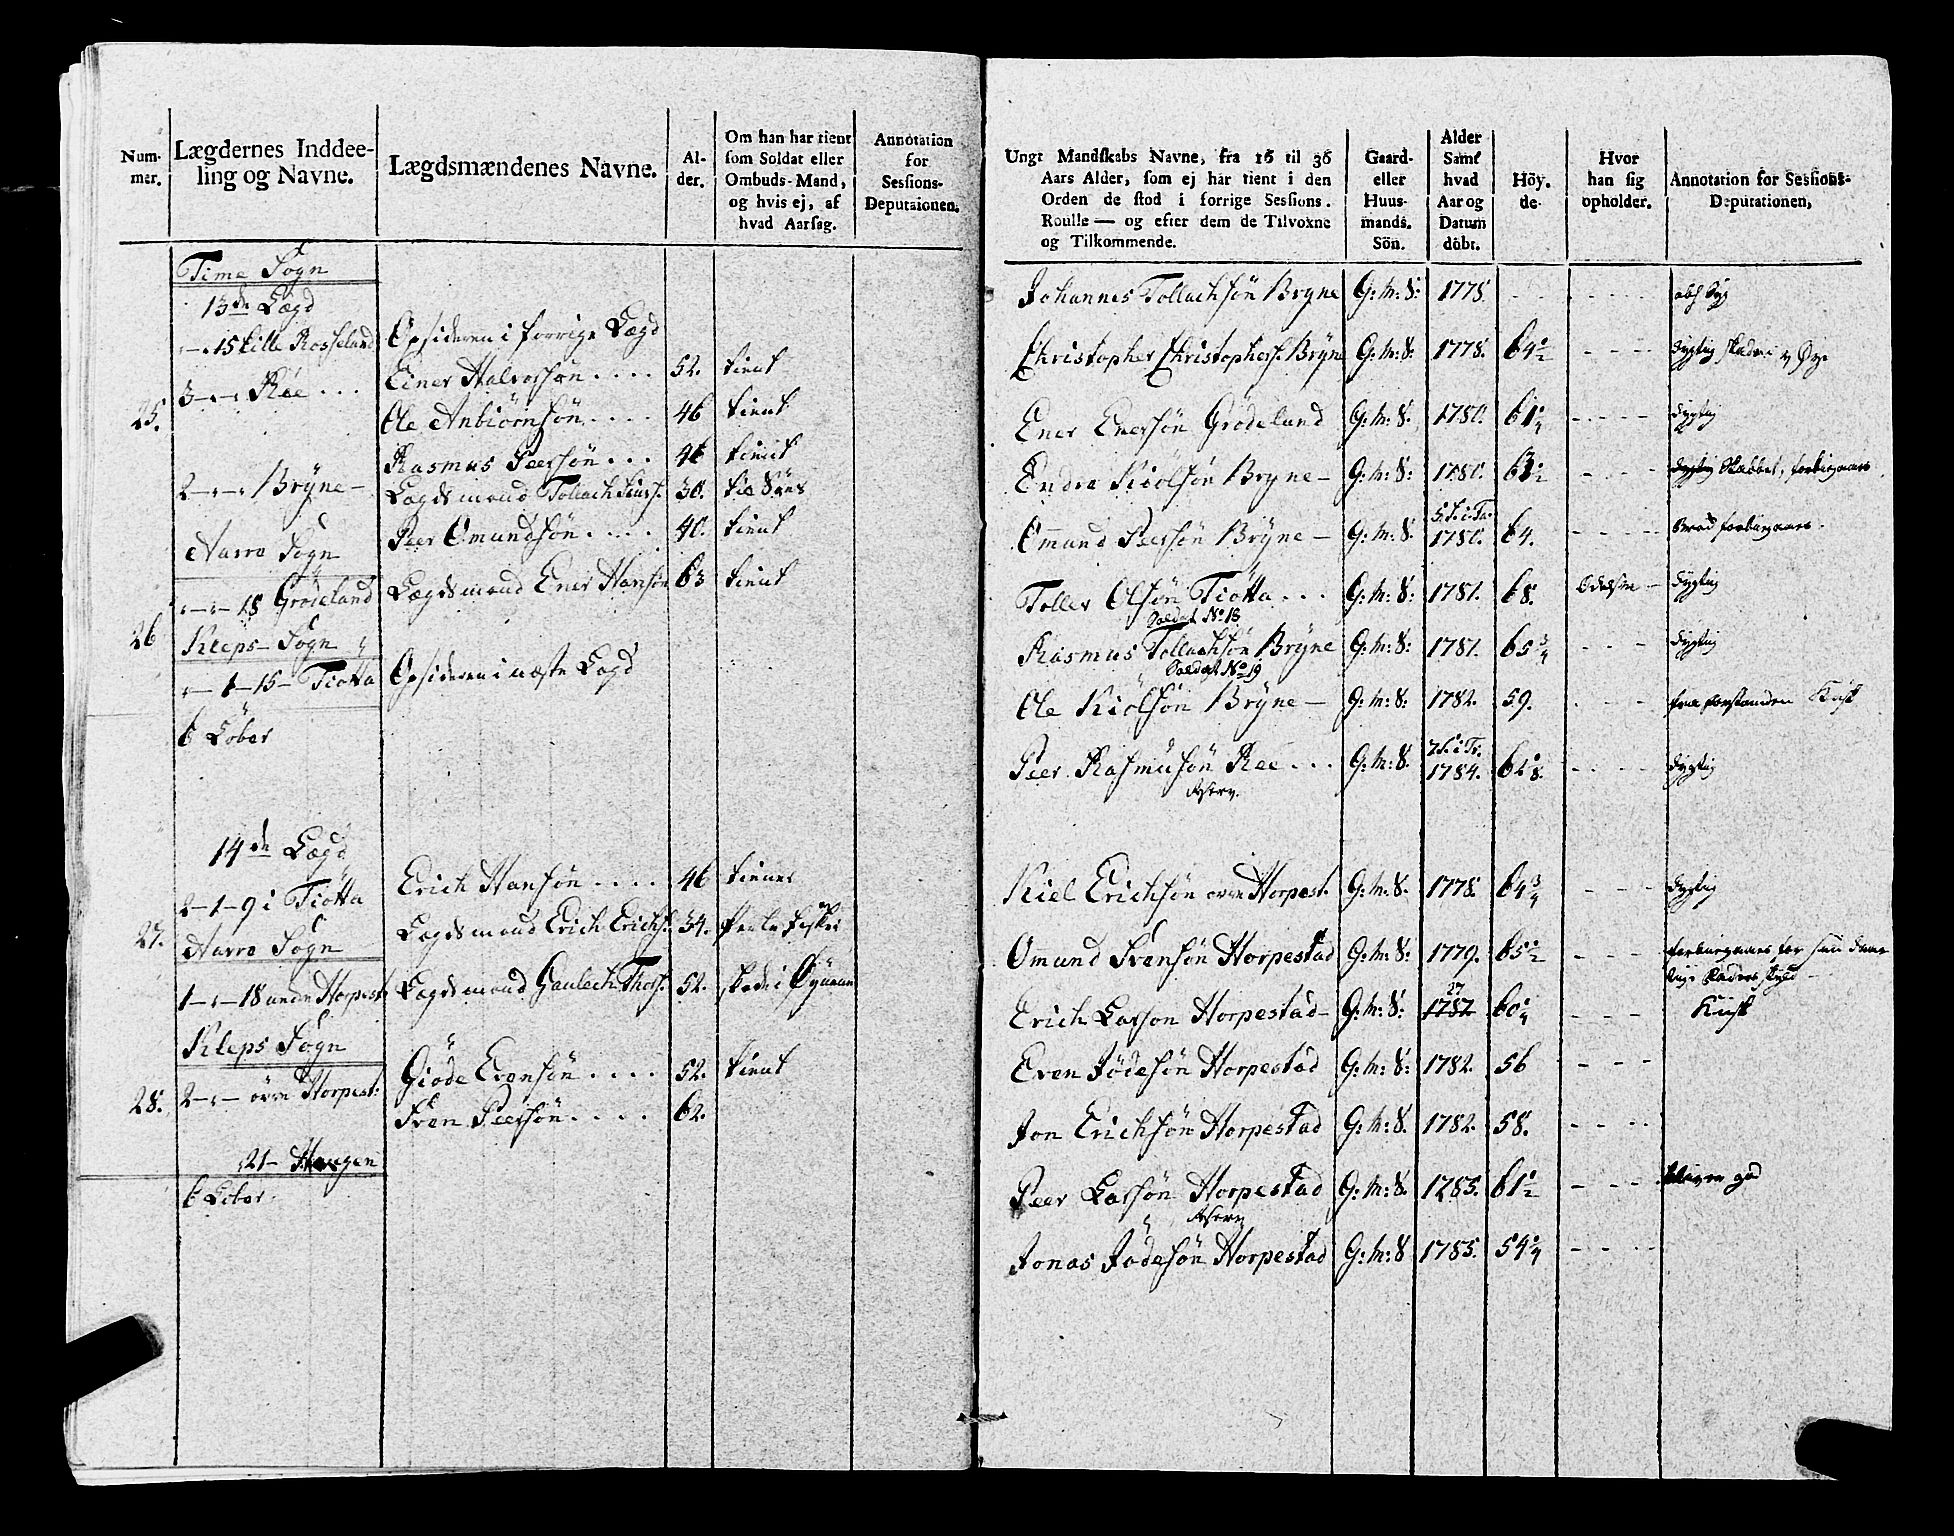 Num-
mer.
Lægdernes Inddee-
ling og Navne.
Lægdsmændenes Navne.
Al-
der.
Om han har tient
som Soldat eller
Ombuds-Mand,
og hvis ej, af
hvad Aarsag.
Annotation
for
Sessions-
Deputaionen.
Time Sogn
13de Lægd
15 Lille Rosseland
Opsideren i forrige Lægd
3 Ree ...
Einer Halvorsøn .... 52. tient
25.
Ole Anbiörnsön .... 46 tient
Rasmus Peersön ... 46 tient
2 Bryne
Lægdsmand Tollach 30.
Peer Omundsön .... 40. tient
Aarre Sogn
18 Gröteland
Lægdsmand Ener Hansön 63 tient
26
Kleps Sogn
1-15- Tiötta
Opsideren i næste Lægd
6 Löber
14de Lægd
2-1-9 i Tiötta
Erich Hansön .... 46 tiener
27.
Lægdsmand Erich Erichs. 34.
Aarre Sogn
1 18 Horpest.
Lægdsmand Gaulach Thors. 52.
Kleps Sogn
28.
2 övre Horpest:
Giöde Evensön .... 52. tient
Sven Peersön .... 62.
21- Haugen
6 Löber.
Ungt Mandskabs Navne, fra 16 til 36
Aars Alder, som ej har tient i den
Orden de stod i forrige Sessions.
Roulle — og efter dem de Tilvoxne
og Tilkommende.
Gaard-
eller
Huus-
mands.
Sön.
Alder
Samt
hvad
Aar og
Datum
döbt.
Höy.
de
Hvor
han sig
opholder.
Annotation for Sessions-
Deputationen,
Johannes Tollachsön Bryne G:M:S: 1778.
Christopher Christophers. Bryne G:M:S: 1778. 64 1/2 dygtig
Ener Enersön Grödeland G:M:S. 1780. 61 1/4 dygtig
Endre Kiölsön Bryne G:M:S: 1780. 63 1/2
Omund Peersön Bryne G:M:S. 1780. 64. forbigaaes.
Toller Olsön Tiötta ... G:M:S: 1781. 68. dygtig
Soldat No 18
Rasmus Tollachsön Bryne G:M:S: 1781. 65 3/4 dygtig
Soldat No 19
Ole Kiölsön Bryne G:M:S: 1782. 59.
Peer Rasmusön Ree ... G:M:S. 1784. 62 1/8. dygtig
Reserv.
Kiel Erichsön övre Horpest. G:M:S. 1778. 64 3/4 dygtig
Omund Svensön Horpestad G:M:S: 1779. 65 1/2
Erich Larson Horpestad G:M:S: 60 1/4
Even Jödesön Horpestad G:M:S: 1782. 56
Jon Erichsön Horpestad G:M:S. 1782. 58.
Peer Larsön Horpestad G:M:S. 1785. 61 1/2
Reserv
Jonas Jödesön Horpestad G:M:S 1785. 54 1/4